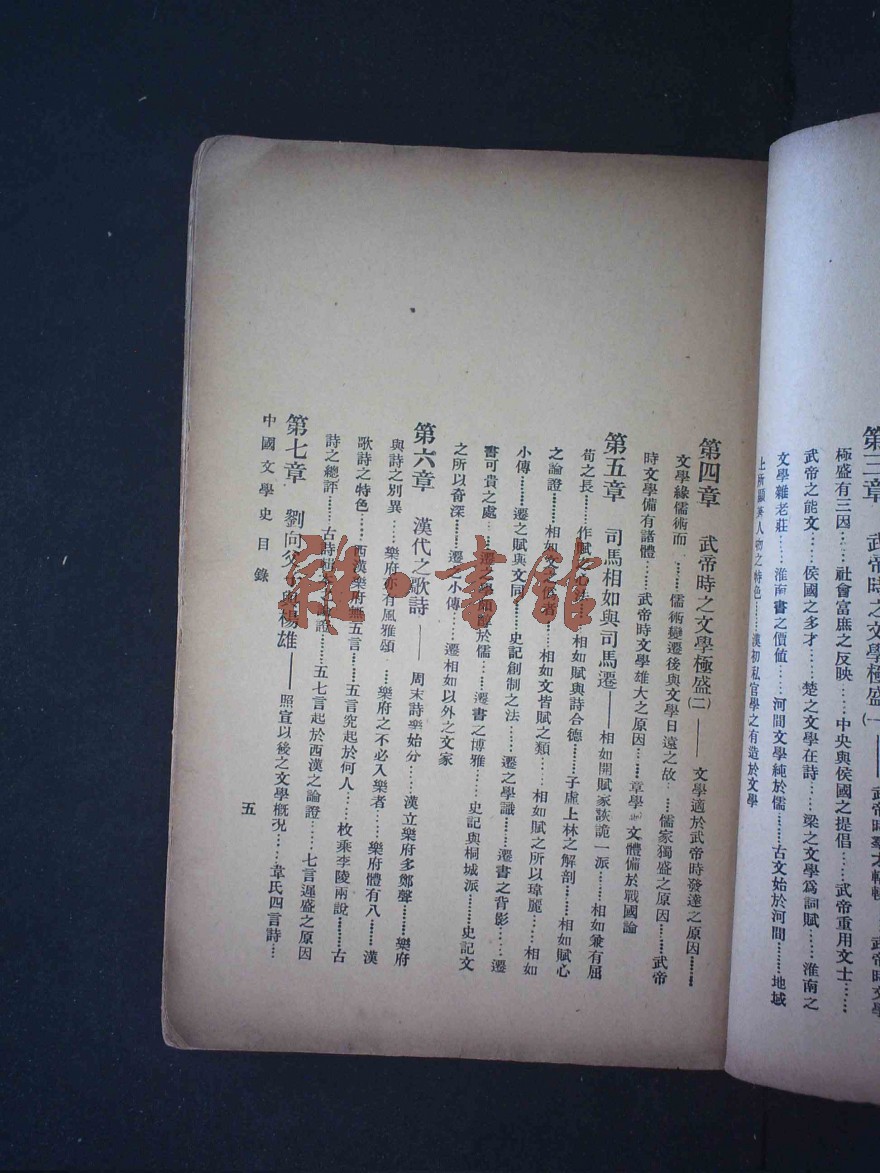 第三章　武帝時之文學極盛(一)——武帝時羣才
極盛有三因……社會富庶之反映……中央與侯國之提倡……武帝重用文士……
武帝之能文……侯國之多才……楚之文學在詩……梁之文學爲詞賦……淮南之
文學雜老莊……淮南書之價值……河間文學純於儒……古文始於河間……地域
上所顯異人物之特色……漢初私官學之有造於文學
第四章　武帝時之文學極盛(二)——文學適於武帝時發達之原因……
文學緣儒術而……儒術變遷後與文學日遠之故……儒家獨盛之原因……武帝
時文學備有諸體……武帝時文學雄大之原因……章學 文體備於戰國論
第五章　司馬相如與司馬遷——相如開賦家詼詭一派……相如兼有屈
荀之長……作賦之心法……相如賦與詩合德……子虛上林之解剖……相如賦心
之論證……相如文之僞者……相如文皆賦之類……相如賦之所以瑋麗……相如
小傳……遷之賦與文同……史記創制之法……遷之學識……遷書之背影……遷
書可貴之處……遷之學 於儒……遷書之博雅……史記與桐城派……史記文
之所以奇深……遷之小傳……遷相如以外之文家
第六章　漢代之歌詩——周末詩樂始分……漢立樂府多鄭聲……樂府
與詩之別異……樂府亦有風雅頌……樂府之不必入樂者……樂府體有八……漢
歌詩之特色……西漢樂府無五言……五言究起於何人……枚乘李陵兩說……古
詩之總評……古詩 證……五七言起於西漢之論證……七言遲盛之原因
第七章　劉向父子與楊雄——照宣以後之文學概况……韋氏四言詩……
中國文學史目錄
五
雜·書館